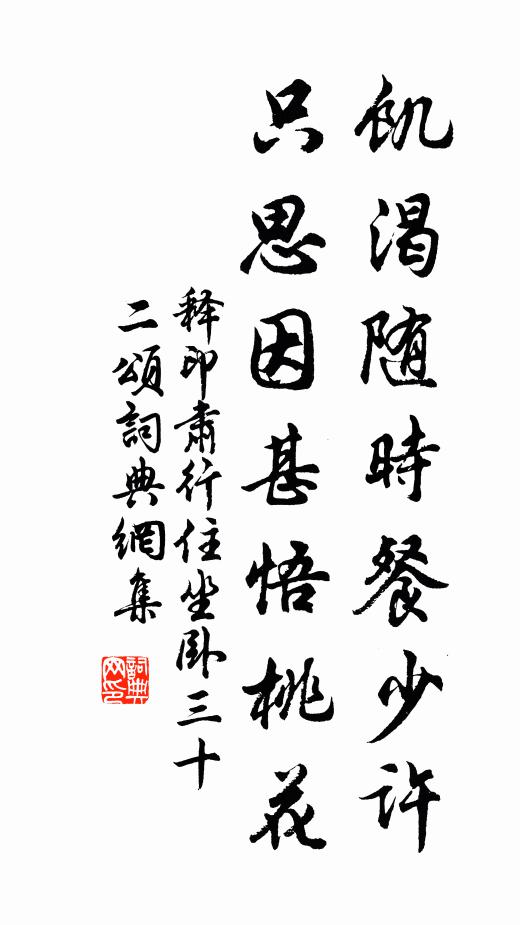 飢渴随時餐少許
只思因甚悟桃花
释印肃行住坐卧三十
二頌詞典網集
詞典网印